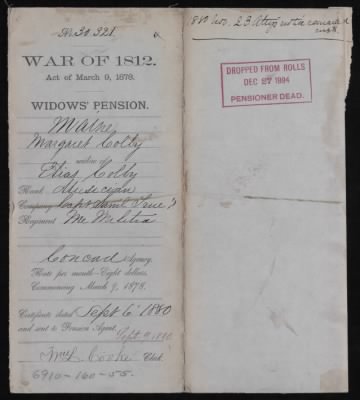 No. 30,321
WAR OF 1812.
Act of March 9, 1878.
WIDOWS' PENSION.
Maine
Margaret Colby
widow of
Elias Colby
Rank Musician
Company Capt Saml True's
Regiment Me Militia
Concord Agency.
Rate per month Eight dollars.
Commencing March 9, 1878.
Certificate dated Sept 6" 1880
and sent to Pension Agent.
Sept 9, 1880
Wm L. Cooke Clerk.
6910-160-55.
1880 Nov. 23
DROPPED FROM ROLLS
DEC 27 1894
PENSIONER DEAD.